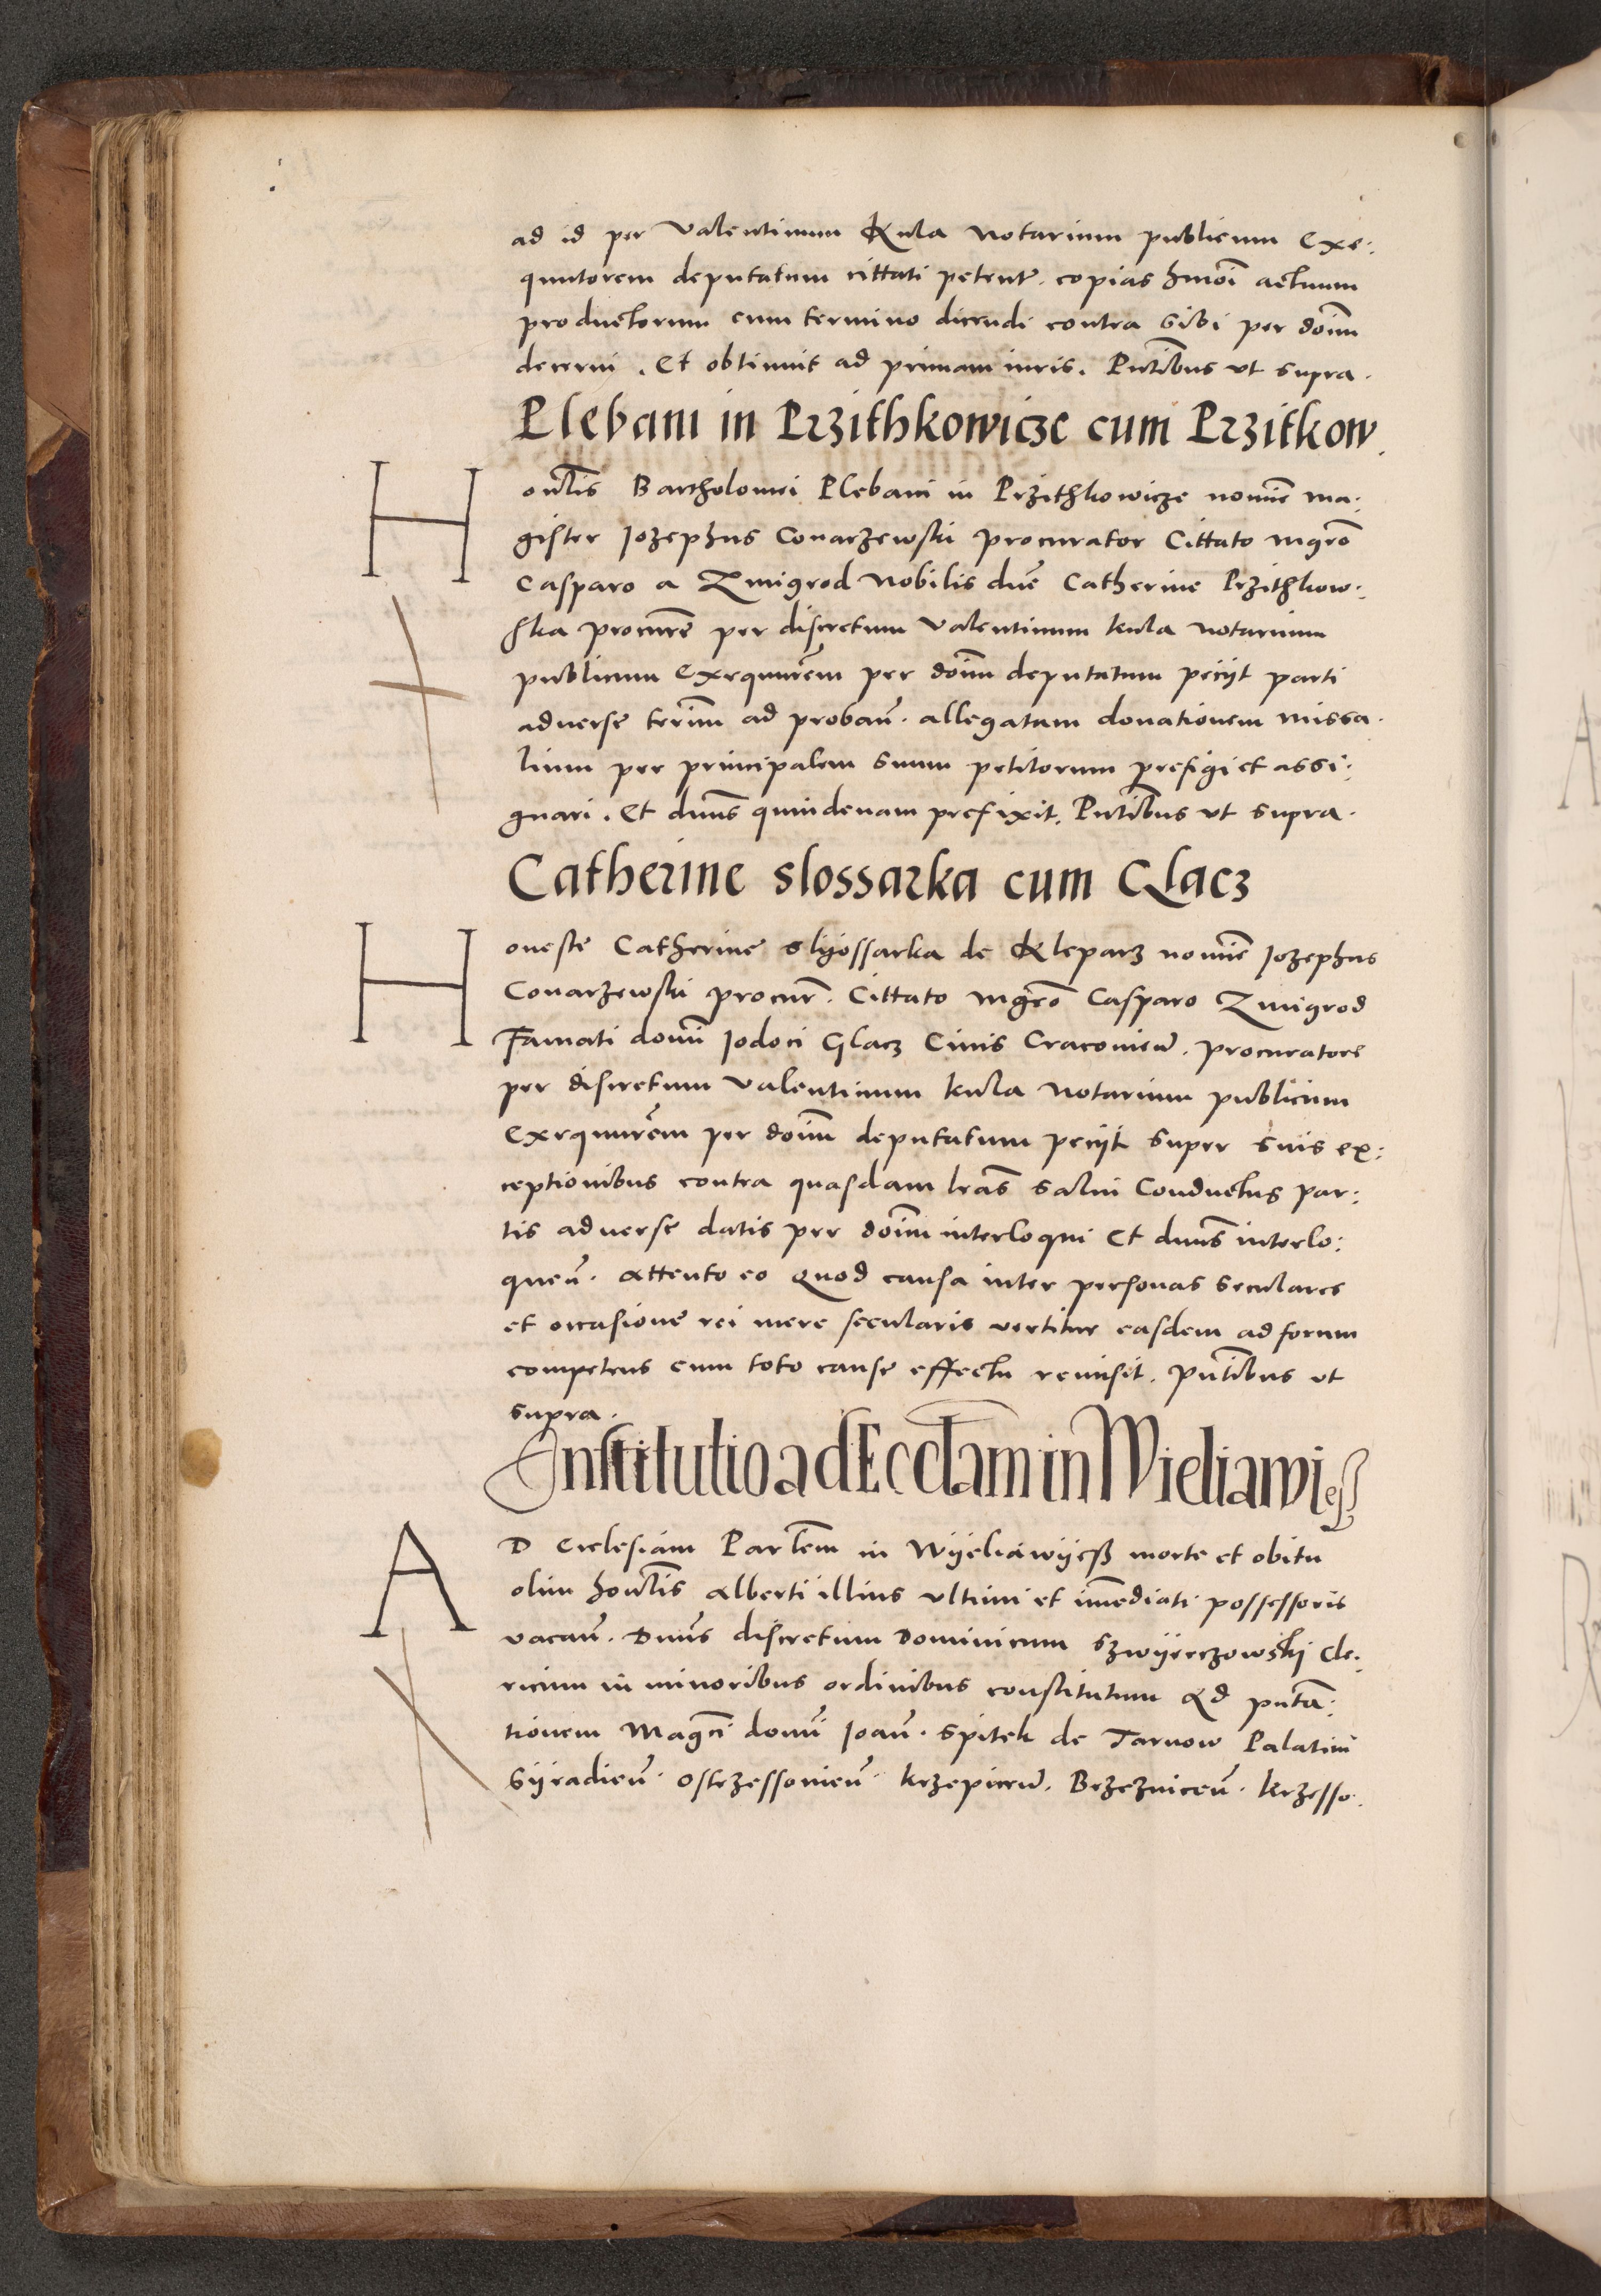 ad id per Valentinum Kula Notarium publicum Exe:
quutorem deputatum cittati petente. copias hmōi actuum
productorum cum termino dicendi contra sibi per doīm
decerni. Et obtinuit ad primam iuris. Pn̄tibus vt supra.
Plebani in Przithkowicze cum Przitkow.
Hon̄lis Bartholomei Plebani in Przithkowicze nomīe ma:
gister Iozephus Conarzewski procurator Cittato mgr̄o
Casparo a Zmigrod Nobilis dn̄e Catherine Przithkow:
ska procur̄e per discretum Valentinum kula notarium
publicum Exequur̄em per doīm deputatum peciit parti
aduerse term̄ ad proban̄. allegatam donationem missa.
lium per principalem suum petitorum prefigi et assi:
gnari. Et dn̄us quindenam prefixit. Pn̄tibus vt supra.
Catherine slossarka cum Glacz
Honeste Catherine slijossarka de Kleparz nomīe Iozephus
Conarzewski procur̄. Cittato mgr̄o Casparo Zmigrod
Famati domī Iodoci Glacz Ciuis Cracouien̄. procuratore
per discretum Valentinum kula Notarium publicum
Exequur̄em per doīm deputatum peciit super suis ex:
ceptionibus contra quasdam lr̄as salui Conductus par:
tis aduerse datis per doīm interloqui Et dn̄us interlo:
quen̄. Attento eo Quod causa inter personas seculares
et occasione rei mere secularis vertitur easdem ad forum
competens cum toto cause effectu remisit. Pn̄tibus vt
supra.
Institutio ad Eccl̄am in Wieliawieß
AD Ecclesiam Par̄lem in Wyeliawyeß morte et obitu
olim hon̄lis Alberti illius vltimi et īmediati possessoris
vacan̄. Dn̄us discretum Dominicum Szwyerczowskj Cle:
ricum in minoribus ordinibus constitutum Ad pn̄ta:
tionem Magn̄ci domī Ioan̄. Spitek de Tarnow Palatini
Syradien̄. Ostrzessouien̄. krzepicen̄. Brzeznicen̄. krzesso.